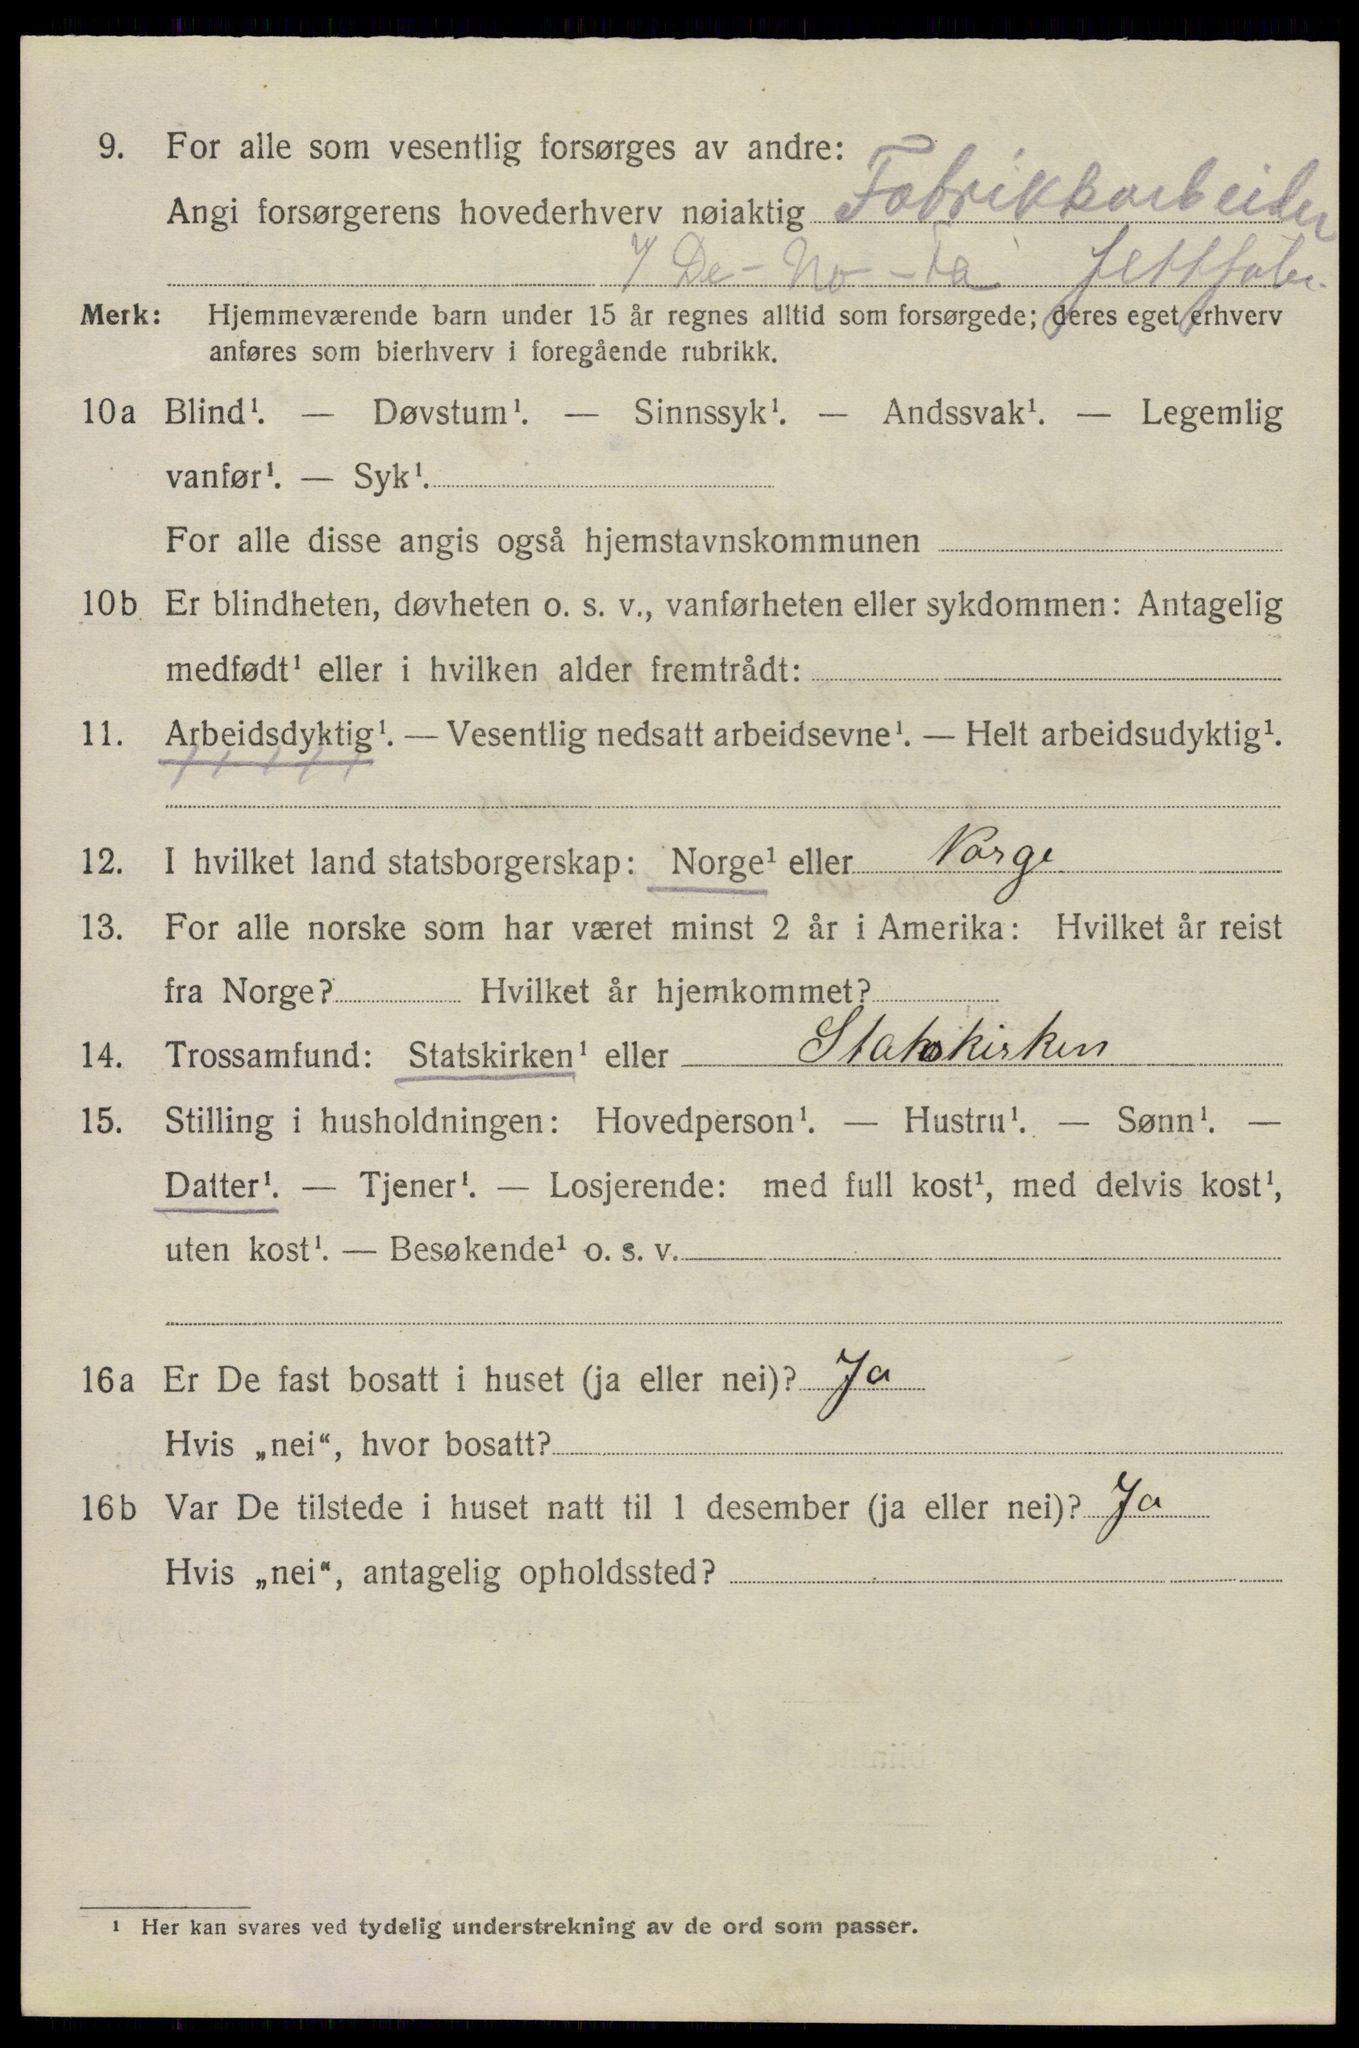 9. For alle som vesentlig forsørges av andre:
Angi forsørgerens hovederhverv nøiaktig Fabrikkarbeider
V De-No-Fa fettfabr.
Merk: Hjemmeværende barn under 15 år regnes alltid som forsørgede; deres eget erhverv
anføres som bierhverv i foregående rubrikk.
10a Blind¹. — Døvstum¹. — Sinnssyk¹. — Andssvak¹. — Legemlig
vanfør¹. — Syk¹.
For alle disse angis også hjemstavnskommunen
10b Er blindheten, døvheten o. s. v., vanførheten eller sykdommen: Antagelig
medfødt¹ eller i hvilken alder fremtrådt:
11. Arbeidsdyktig¹. — Vesentlig nedsatt arbeidsevne¹. — Helt arbeidsudyktig¹.
12. I hvilket land statsborgerskap: Norge¹ eller Norge
13. For alle norske som har været minst 2 år i Amerika: Hvilket år reist
fra Norge? Hvilket år hjemkommet?
14. Trossamfund: Statskirken¹ eller Statskirken
15. Stilling i husholdningen: Hovedperson¹. — Hustru¹. — Sønn¹. —
Datter¹. — Tjener¹. — Losjerende: med full kost¹, med delvis kost¹,
uten kost¹. — Besøkende¹ o. s. v.
16a Er De fast bosatt i huset (ja eller nei)? Ja
Hvis „nei“, hvor bosatt?
16b Var De tilstede i huset natt til 1 desember (ja eller nei)? Ja
Hvis „nei“, antagelig opholdssted?
¹ Her kan svares ved tydelig understrekning av de ord som passer.